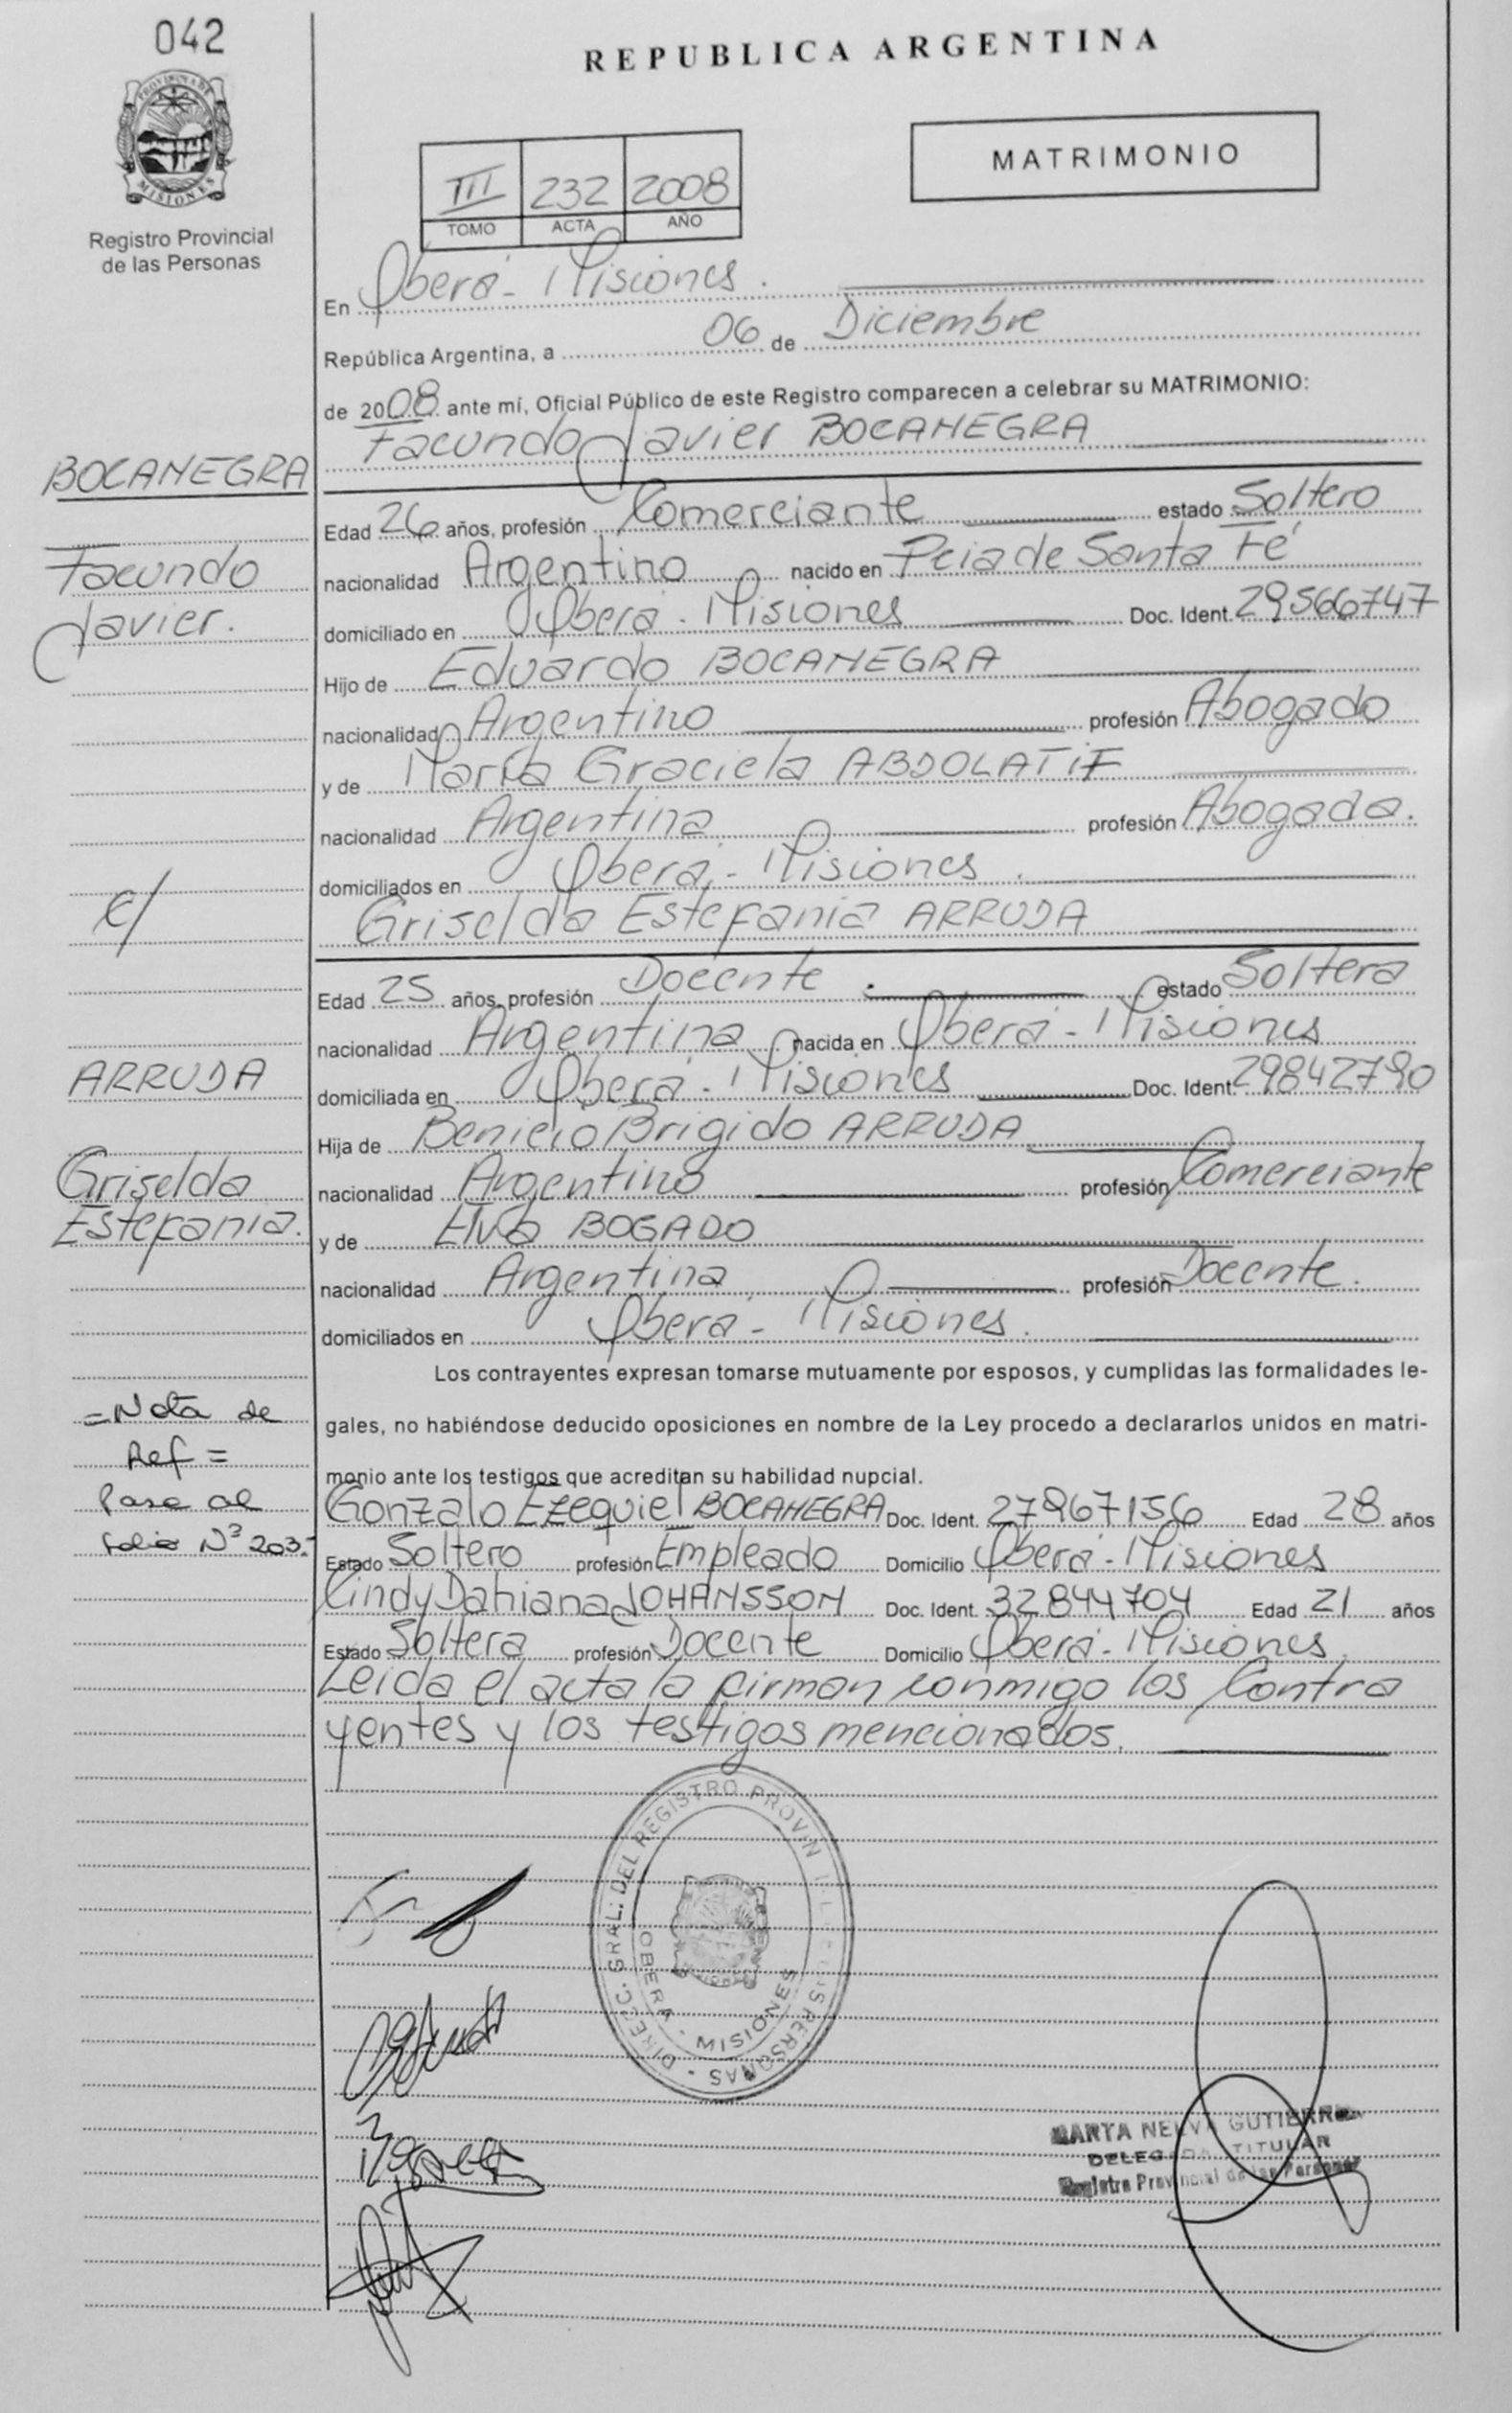 042
REPUBLICA ARGENTINA
PROVINCIA DE
MISIONES
Registro Provincial
de las Personas
MATRIMONIO
III 232 2008
TOMO ACTA AÑO
En Oberá - Misiones.
República Argentina, a 06 de Diciembre
de 2008 ante mí, Oficial Público de este Registro comparecen a celebrar su MATRIMONIO:
Facundo Javier BOCANEGRA
BOCANEGRA
Facundo
Javier.
Edad 26 años, profesión Comerciante estado Soltero
nacionalidad Argentino nacido en Pcia de Santa Fé
domiciliado en Oberá - Misiones Doc. Ident. 29566747
Hijo de Eduardo BOCANEGRA
nacionalidad Argentino profesión Abogado
y de María Graciela ABDOLATIF
nacionalidad Argentina profesión Abogada.
domiciliados en Oberá - Misiones.
c/
Griselda Estefania ARRUDA
Edad 25 años, profesión Docente. estado Soltera
nacionalidad Argentina nacida en Oberá - Misiones
ARRUDA
Griselda
Estefania.
domiciliada en Oberá - Misiones Doc. Ident. 29842790
Hija de Benicio Brigido ARRUDA
nacionalidad Argentino profesión Comerciante
y de Elva BOGADO
nacionalidad Argentina profesión Docente.
domiciliados en Oberá - Misiones.
Los contrayentes expresan tomarse mutuamente por esposos, y cumplidas las formalidades le-
gales, no habiéndose deducido oposiciones en nombre de la Ley procedo a declararlos unidos en matri-
monio ante los testigos que acreditan su habilidad nupcial.
= Nota de
Ref =
Pase al
folio Nº 203.-
Gonzalo Ezequiel BOCANEGRA Doc. Ident. 27967156 Edad 28 años
Estado Soltero profesión Empleado Domicilio Oberá - Misiones
Cindy Dahiana JOHANSSON Doc. Ident. 32844704 Edad 21 años
Estado Soltera profesión Docente Domicilio Oberá - Misiones.
Leida el acta la firman conmigo los Contra
yentes y los testigos mencionados.
DIREC. GRAL. DEL REGISTRO PROVINCIAL DE LAS PERSONAS
OBERA - MISIONES
MARTA NELVA GUTIERREZ
DELEGADA TITULAR
Registro Provincial de las Personas